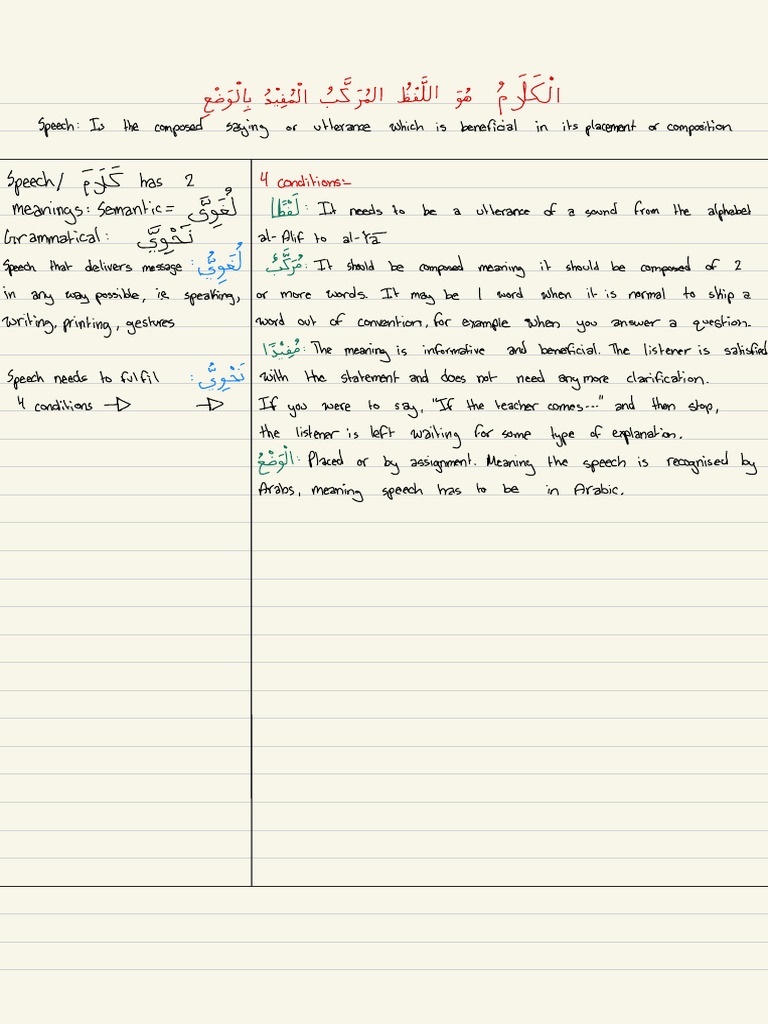 الْكَلَامُ هُوَ اللَّفْظُ المُرَكَّبُ الْمُفِيْدُ بِالْوَضْعِ
Speech: Is the composed saying or utterance which is beneficial in its placement or composition
Speech/ كَلَامَ has 2
meanings: Semantic = لُغَوِيَّ
Grammatical: نَحْوِيَّ
Speech that delivers message : لُغَوِيُّ
in any way possible, ie speaking,
writing, printing, gestures
Speech needs to fulfil : نَحْوِيُّ
4 conditions → →
4 conditions:-
لَفْظًا: It needs to be a utterance of a sound from the alphabet
al-Alif to al-Yā
مُرَكَّبُ: It should be composed meaning it should be composed of 2
or more words. It may be 1 word when it is normal to skip a
word out of convention, for example when you answer a question.
مُفِيْدًا: The meaning is informative and beneficial. The listener is satisfied
with the statement and does not need anymore clarification.
If you were to say, "If the teacher comes..." and then stop,
the listener is left waiting for some type of explanation.
الْوَضْعُ: Placed or by assignment. Meaning the speech is recognised by
Arabs, meaning speech has to be in Arabic.